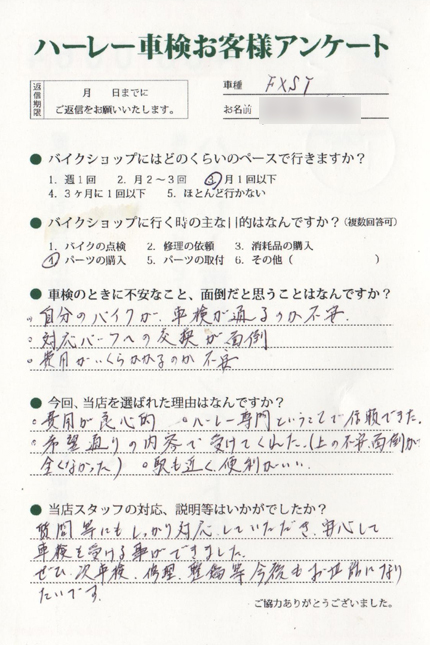 ハーレー車検お客様アンケート
返信期限
月 日までに
ご返信をお願いいたします。
車種 FXST
お名前
● バイクショップにはどのくらいのペースで行きますか?
1. 週1回 2. 月2~3回 3. 月1回以下
4. 3ヶ月に1回以下 5. ほとんど行かない
● バイクショップに行く時の主な目的はなんですか?(複数回答可)
1. バイクの点検 2. 修理の依頼 3. 消耗品の購入
4. パーツの購入 5. パーツの取付 6. その他( )
● 車検のときに不安なこと、面倒だと思うことはなんですか?
○自分のバイクが、車検が通るのか不安.
○対応パーツへの交換が面倒
○費用がいくらかかるのか不安
● 今回、当店を選ばれた理由はなんですか?
○費用が良心的 ○ハーレー専門ということで信頼できた.
○希望通りの内容で受けてくれた.(上の不安.面倒が
全くなかった) ○駅も近く便利がいい.
● 当店スタッフの対応、説明等はいかがでしたか?
質問等にもしっかり対応していただき.安心して
車検を受ける事ができました.
ぜひ、次車検、修理、整備等今後もお世話になり
たいです.
ご協力ありがとうございました。